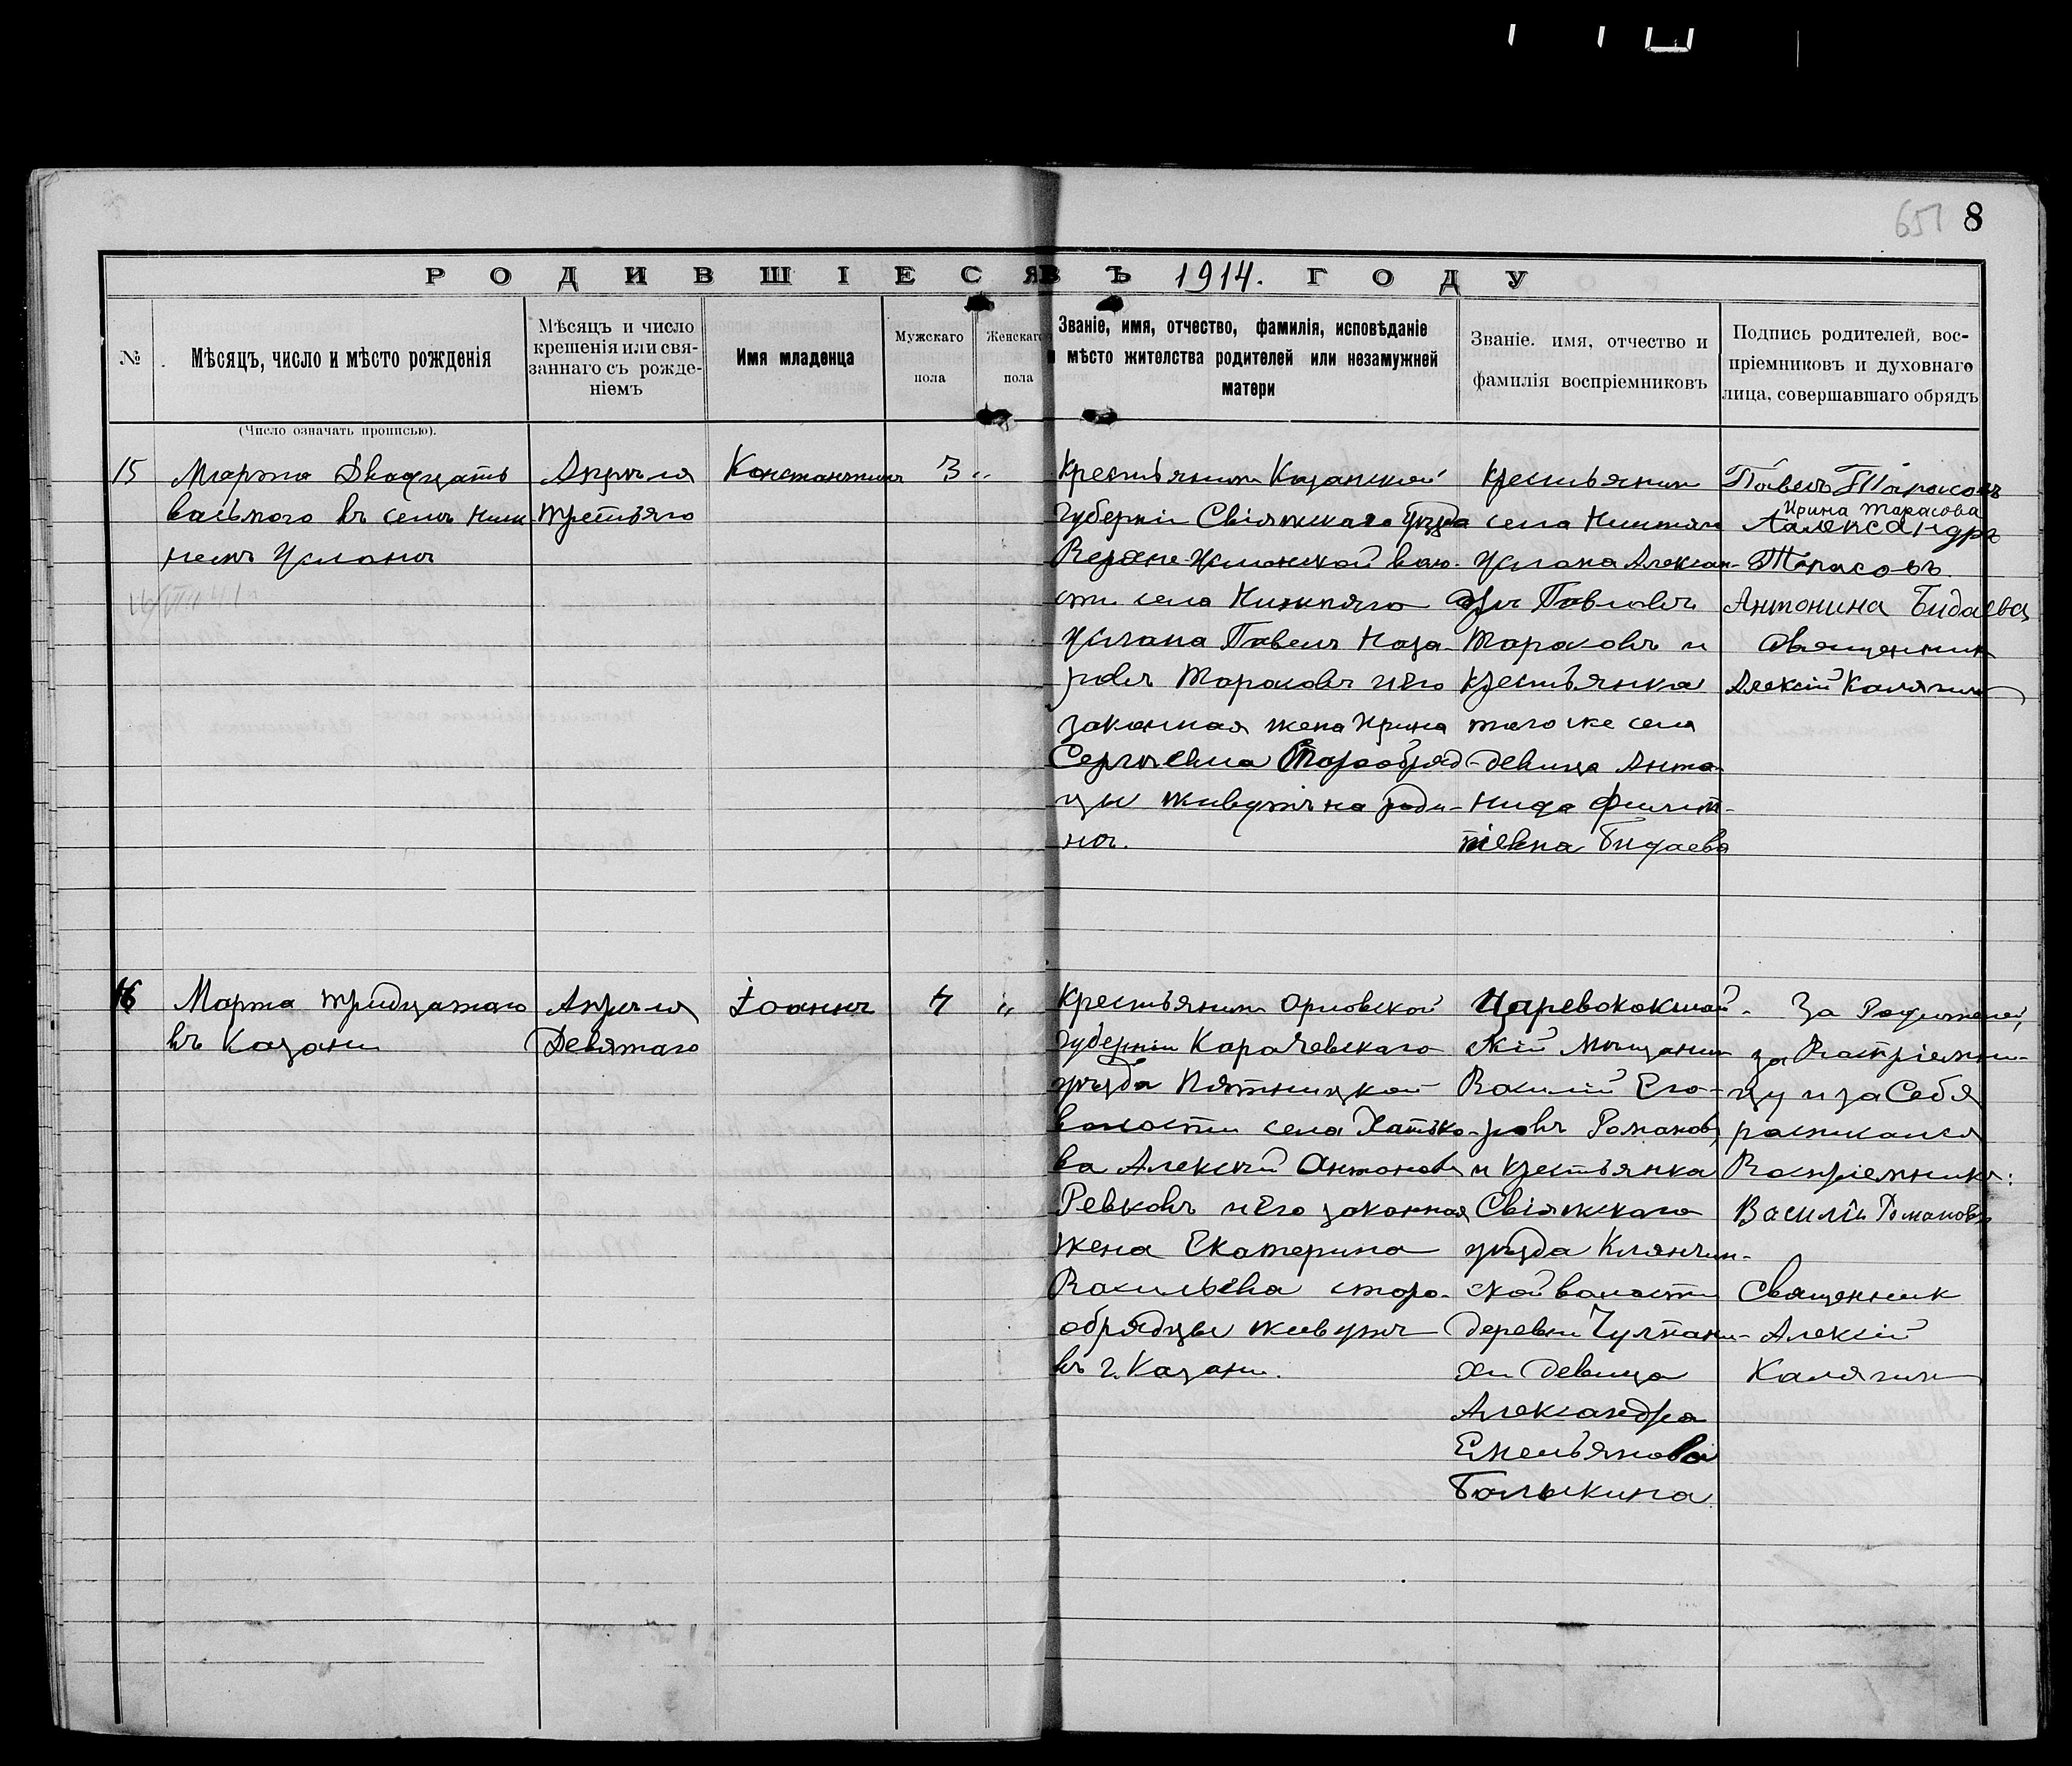 651 8
РОДИВШІЕСЯ ВЪ 1914. ГОДУ
№
Мѣсяцъ, число и мѣсто рожденія
Мѣсяцъ и число
крешенія или свя-
заннаго съ рожде-
ніемъ
Имя младенца
Мужскаго
пола
Женскаго
пола
Званіе, имя, отчество, фамилія, исповѣданіе
и мѣсто жителства родителей или незамужней
матери
Званіе. имя, отчество и
фамилія воспріемниковъ
Подпись родителей, вос-
пріемниковъ и духовнаго
лица, совершавшаго обрядъ
(Число означать прописью).
15
Марта Двадцать
васьмого въ селѣ Ниж
немъ Услонѣ
Апрѣля
третьяго
Константинъ
3
„
Крестьянинъ Казанской
Губерніи Свіяжскаго уѣзда
Верхне-Услонской воло-
сти села Нижняго
Услана Павелъ Наза-
ровъ Тарасовъ и Его
законная жена Ирина
Сергѣевна Старообряд-
цы живутъ на роди-
нѣ.
Крестьянинъ
села Нижняго
Услана Алексан-
дръ Павловъ
Тарасовъ и
крестьянка
того же села
девица Анто-
нида Филип-
піевна Бидаева
Павелъ Тарасовъ
Ирина Тарасова
Александръ
Тарасовъ.
Антонина Бидаева
Священникъ
Алексій Калягинъ
16
Марта тридцатаго
въ Казани
Апрѣля
Девятаго
Іоаннъ
4
„
Крестьянинъ Орловской
Губерніи Карачевскаго
уѣзда Пятницкой
волости села Хатько-
ва Алексѣй Антоновъ
Ревковъ и Его законная
жена Екатерина
Васильева старо-
обрядцы живутъ
въ г. Казани.
Царевококшай-
скій мѣщанинъ
Василій Его-
ровъ Романовъ
и крестьянка
Свіяжскаго
уѣзда Клянчин-
ской воласти
деревни Чулпани-
хи девица
Александра
Емельянова
Балыкина
За Родителей,
за Васпріемни-
цу и за Себя
росписался
Васпріемникъ:
Василій Романовъ
Священник
Алексій
Калягинъ